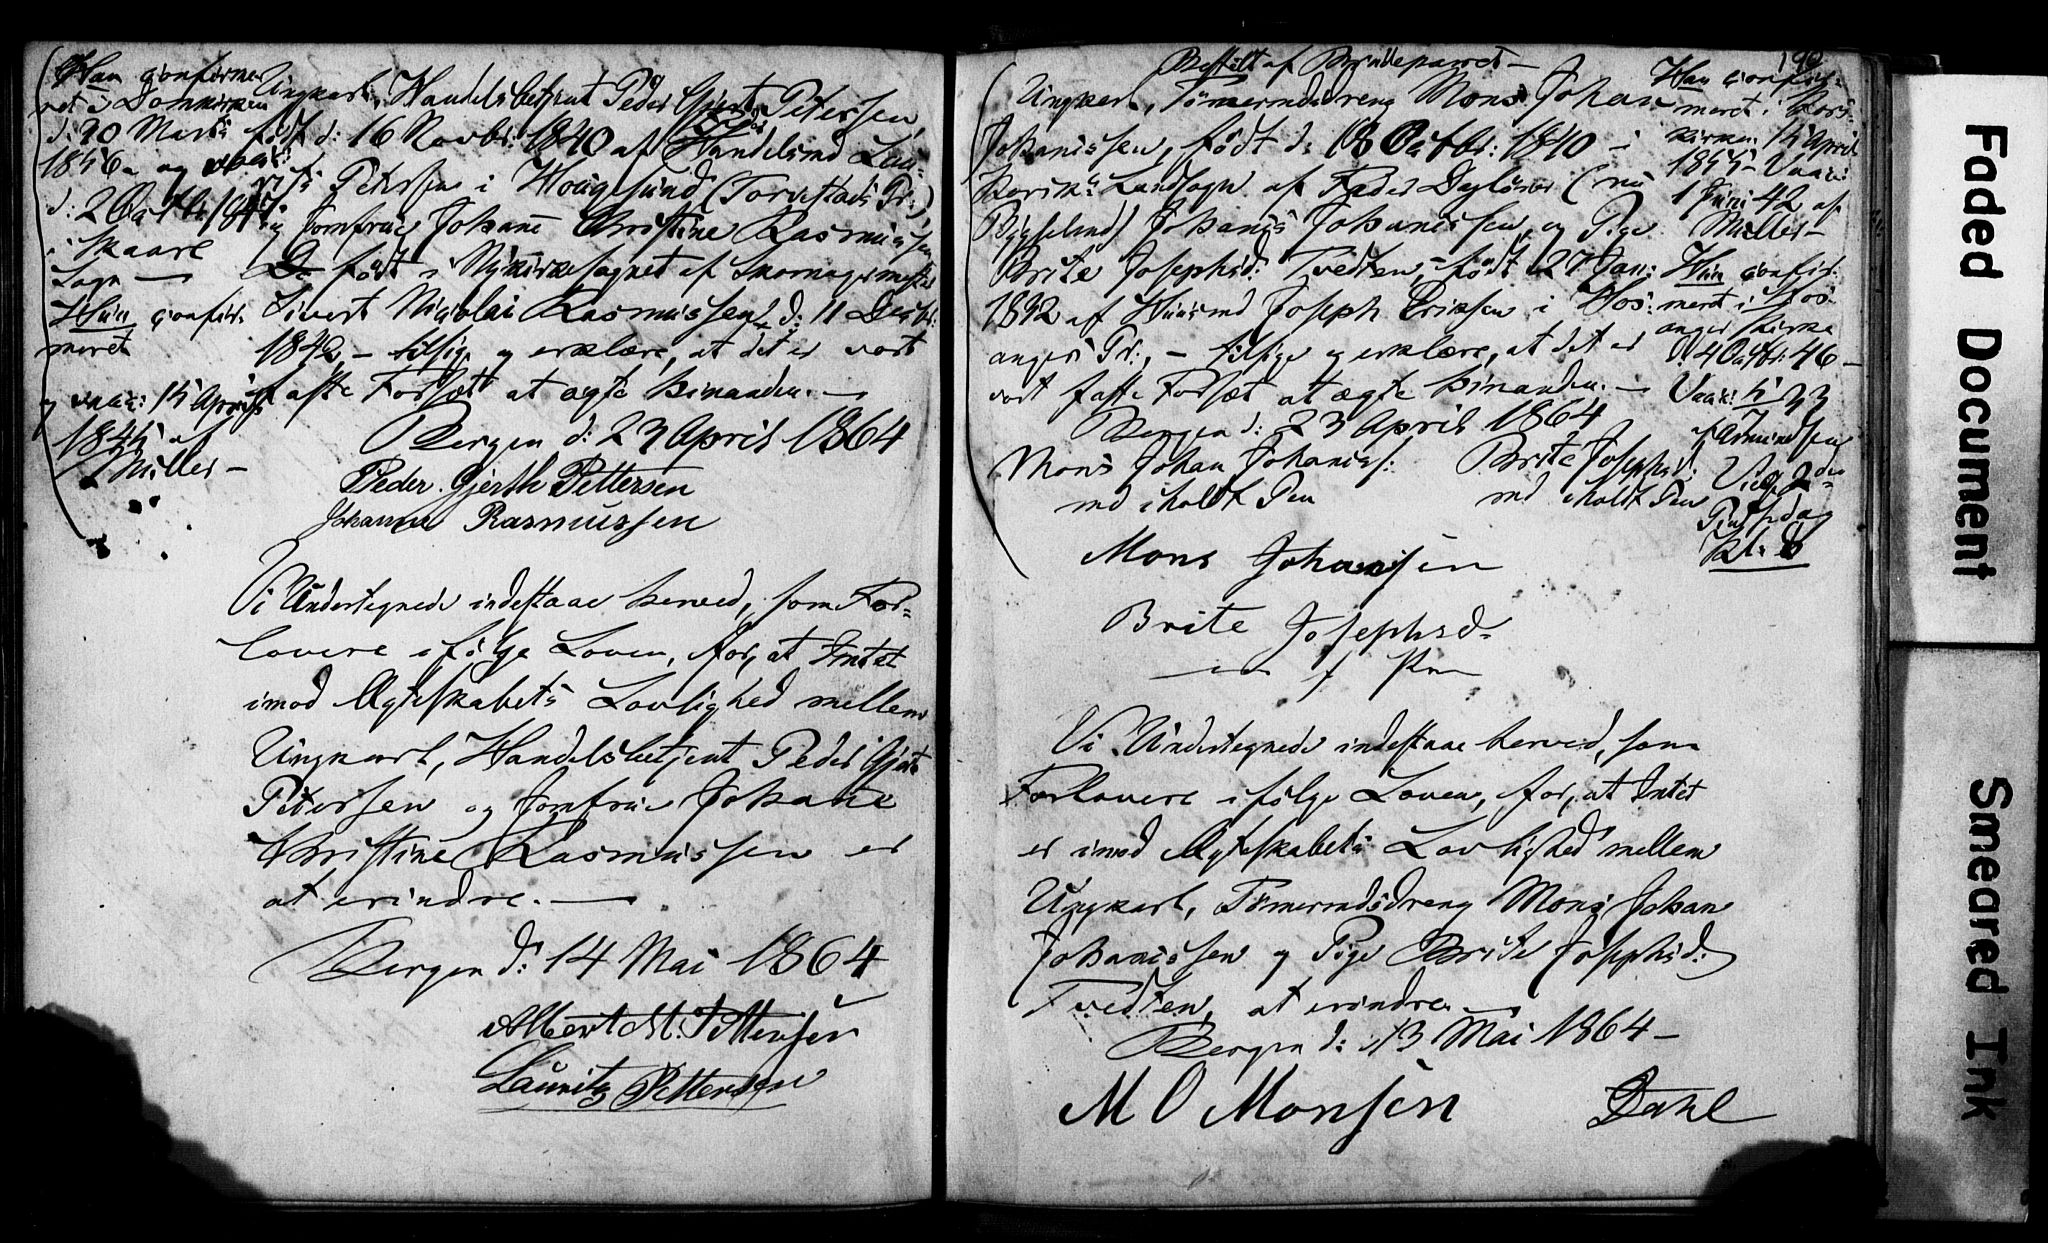 Han confirme-
ret i Domkirken
d: 20 Marts
1856 og vac:
d: 2 Octb: 1847
i Skaare
Sogn —
Hun confir-
meret
og vacc: 15 April
1845 af
Müller —
Ungkarl, Handelsbetjent Peder Gjert Petersen,
født d: 16 Novbr: 1840 af Handelsmd Lau-
rits Petersen i Hougesund (Torvestads Pr:),
og Jomfrue Johane Christine Rasmussen
født i Nykirkesognet af Skomagermester
Sivert Nicolai Rasmussen d: 11 Decbr:
1842 — tilsige og erklære, at det er vort
faste Forsæt at ægte hinanden. —
Bergen d: 23 April 1864
Peder Gjerth Pettersen
Johanne Rasmussen
Vi Undertegnede indestaae herved, som For-
lovere ifølge Loven, for, at Intet
imod Ægteskabets Lovlighed mellem
Ungkarl, Handelsbetjent Peder Gjert
Petersen og Jomfrue Johane
Christine Rasmussen er
at erindre. —
Bergen d: 14 Mai 1864
Albert M. Pettersen
Lauritz Pettersen
190
Bestilt af Brudeparret —
Ungkarl, Tømermdsdreng Mons Johan
Johanissen, født d: 18 Octbr: 1840 — i
Landsogn af Fader
Johanis Johanissen, og Pige
Brite Josephsd: Tvedten, født 27 Jan:
1842 af Huusmd Joseph Eriksen i Hos-
angers Pr:, — tilsige og erklære, at det er
vort faste Forsæt at ægte hinanden. —
Bergen d: 23 April 1864
Mons Johan Johaniss: Brite Josephsd:
md iholdt Pen md iholdt Pen
Han confir-
meret i Kors-
kirken 15 April
1855 — Vacc:
1 Juni 42 af
Müller —
Hun confir-
meret i Hos-
anger Kirke
d: 4 Octbr: 46 —
Vacc:
Amundsen
Vies 2den
Pintsedag
Kl: 6
Mons Johansen
Brite Josephsd-
Vi Undertegnede indestaae herved, som
Forlovere ifølge Loven, for, at Intet
er imod Ægteskabets Lovlighed mellem
Ungkarl, Tømermdsdreng Mons Johan
Johanissen og Pige Brite Josephsd:
Tvedten, at erindre —
Bergen d: 13 Mai 1864 —
M O Monsen Dahl
Faded Document
Smeared Ink